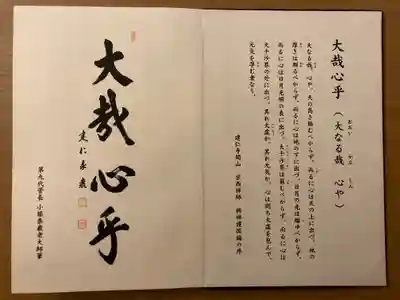 大哉心乎（大なる哉　心や）
おおい　かな　しん
大なる哉、心や。天の高き極むべからず。而るに心は天の上に出づ。地の
厚きは測るべからず。而るに心は地の下に出づ。日月の光は踰ゆべからず。
而るに心は日月光明の表に出づ。大千沙界は窮むべからず。而るに心は
大千沙界の外に出づ。其れ太虚か。其れ元気か。心は則ち太虚を包んで、
元気を孕む者なり。
建仁寺開山　栄西禅師　興禅護国論の序
大哉心乎
建仁泰巖
第九代管長　小堀泰巖老大師筆